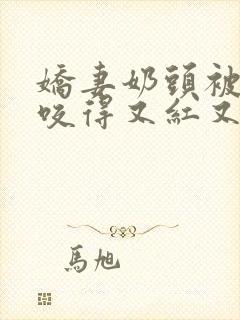 嬌妻奶頭被
咬得又紅又
馬旭